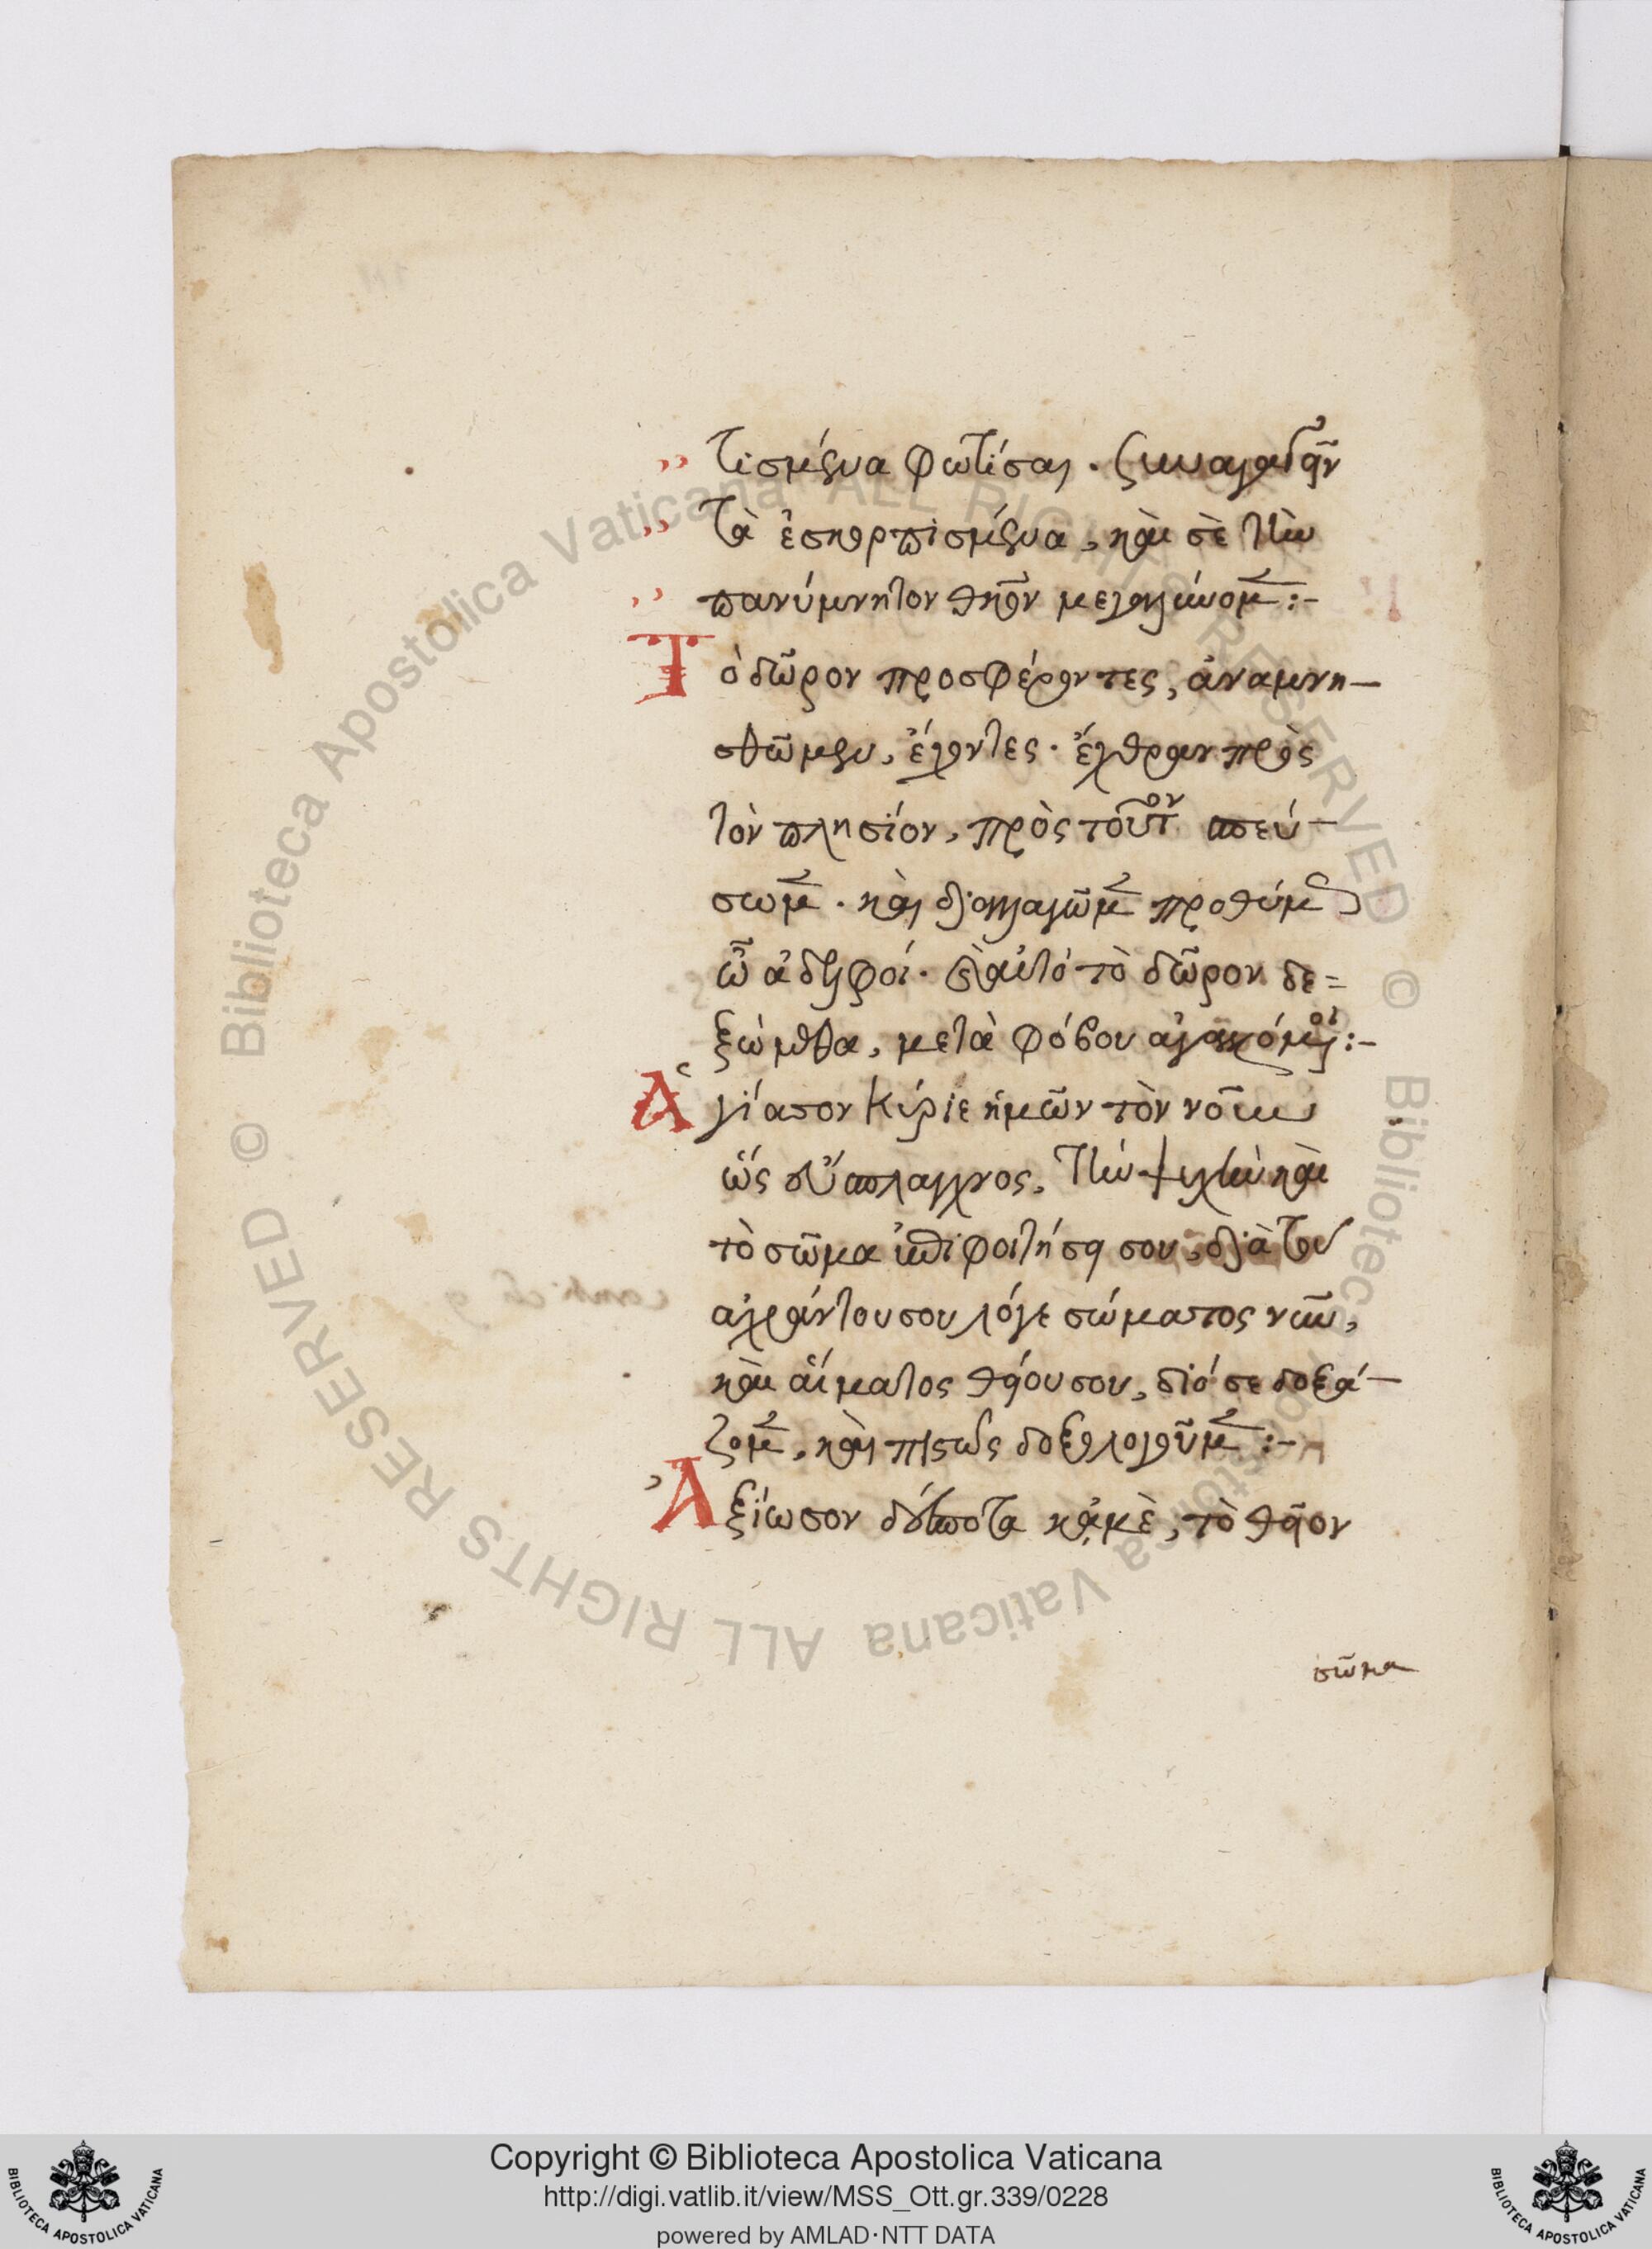 τισμένα φωτίσαι. συναγαγεῖν
τὰ ἐσκορπισμένα, καὶ σὲ τὴν
πανύμνητον θεῖον μεγαλύνομεν:-
Τὸ δῶρον προσφέροντες, ἀναμνη-
σθῶμεν, ἔχοντες. ἔχθραν πρὸς
τὸν πλησίον, πρὸς τοῦτον σπεύ-
σωμεν. καὶ διαλλαγῶμεν προθύμως
ὦ ἀδελφοί. αὐτὸ τὸ δῶρον δε=
ξώμεθα, μετὰ φόβου
Ἁγίασον Κύριε ἡμῶν τὸν νοῦν
ὡς εὔσπλαγχνος, τὴν ψυχὴν καὶ
τὸ σῶμα ἐπιφοιτήσει σου, διὰ τοῦ
ἀχράντου σου λόγε σώματος νῦν,
καὶ αἵματος θείου σου, διό σε δοξά-
ζομεν, καὶ πιστῶς δοξολογοῦμεν:-
Ἀξίωσον δέσποτα κἀμὲ, τὸ θεῖον
σῶμα
© Biblioteca Apostolica Vaticana ALL RIGHTS RESERVED © Biblioteca Apostolica Vaticana ALL RIGHTS RESERVED
Copyright © Biblioteca Apostolica Vaticana
http://digi.vatlib.it/view/MSS_Ott.gr.339/0228
powered by AMLAD·NTT DATA
BIBLIOTECA APOSTOLICA VATICANA
BIBLIOTECA APOSTOLICA VATICANA